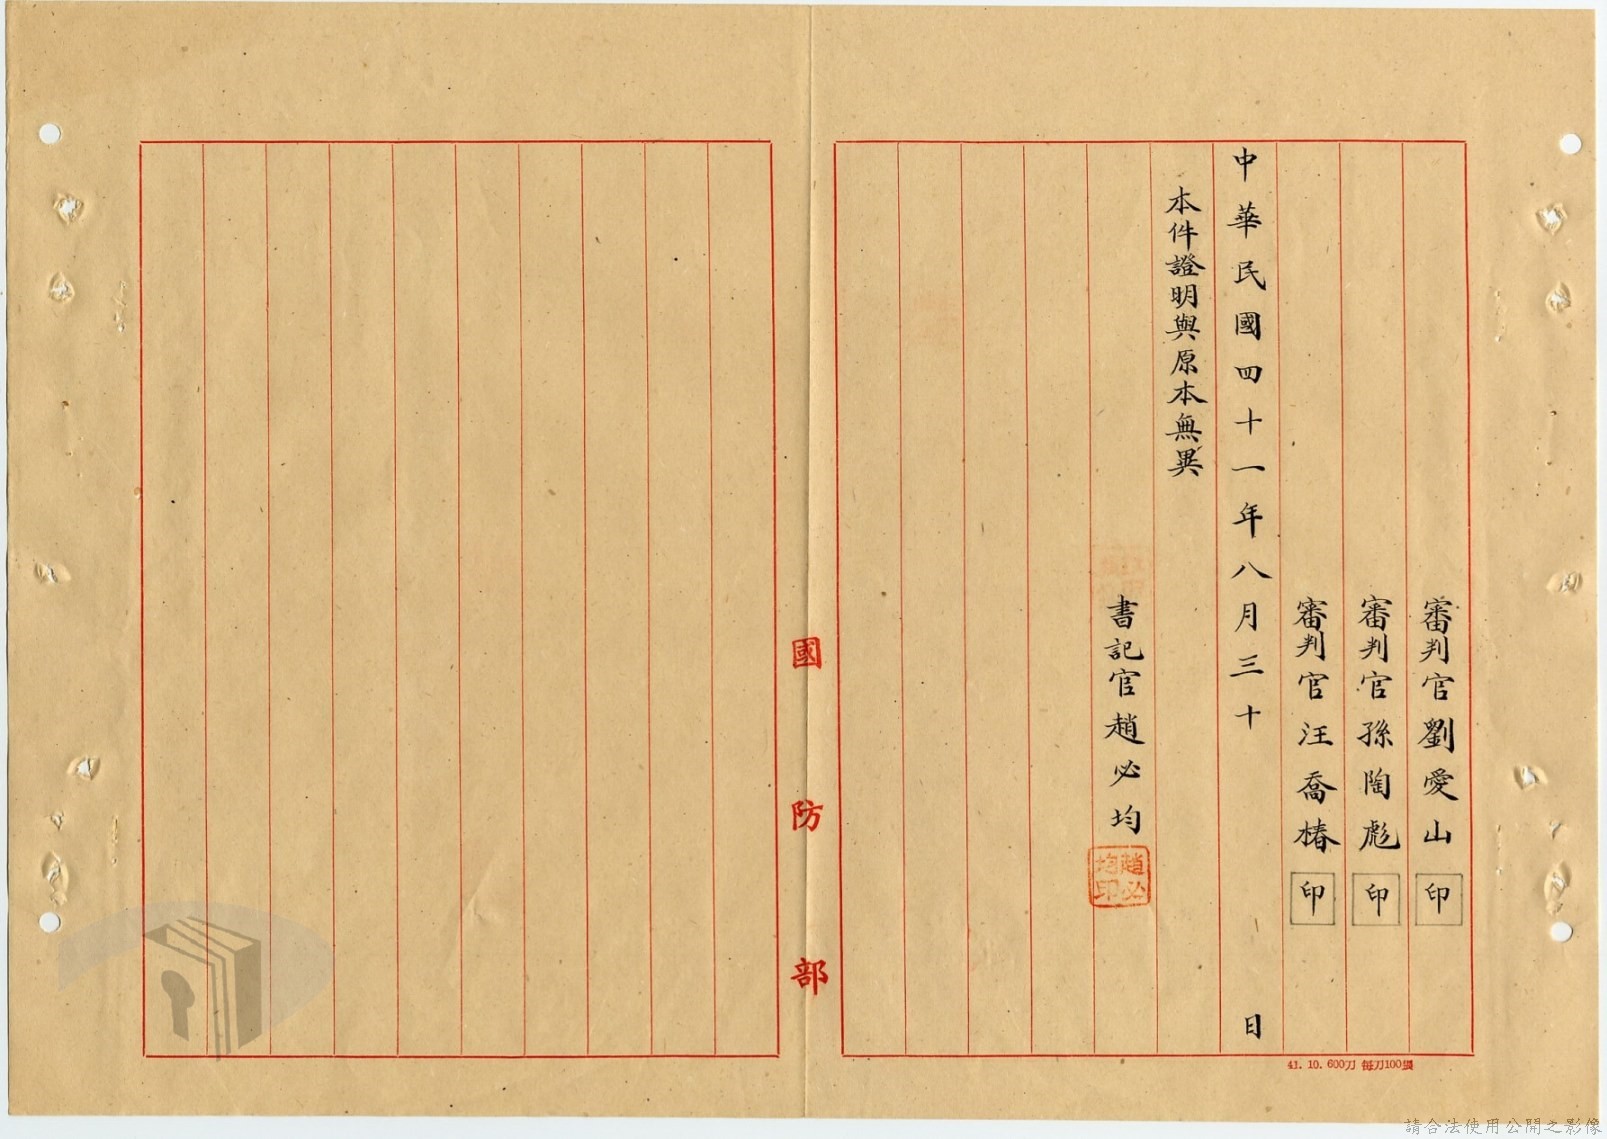 審判官劉愛山印
審判官孫陶彪印
審判官汪喬椿印
中華民國四十一年八月三十日
本件證明與原本無異
書記官趙必均
趙必均印
國防部
41. 10. 600刀 每刀100張
請合法使用公開之影像